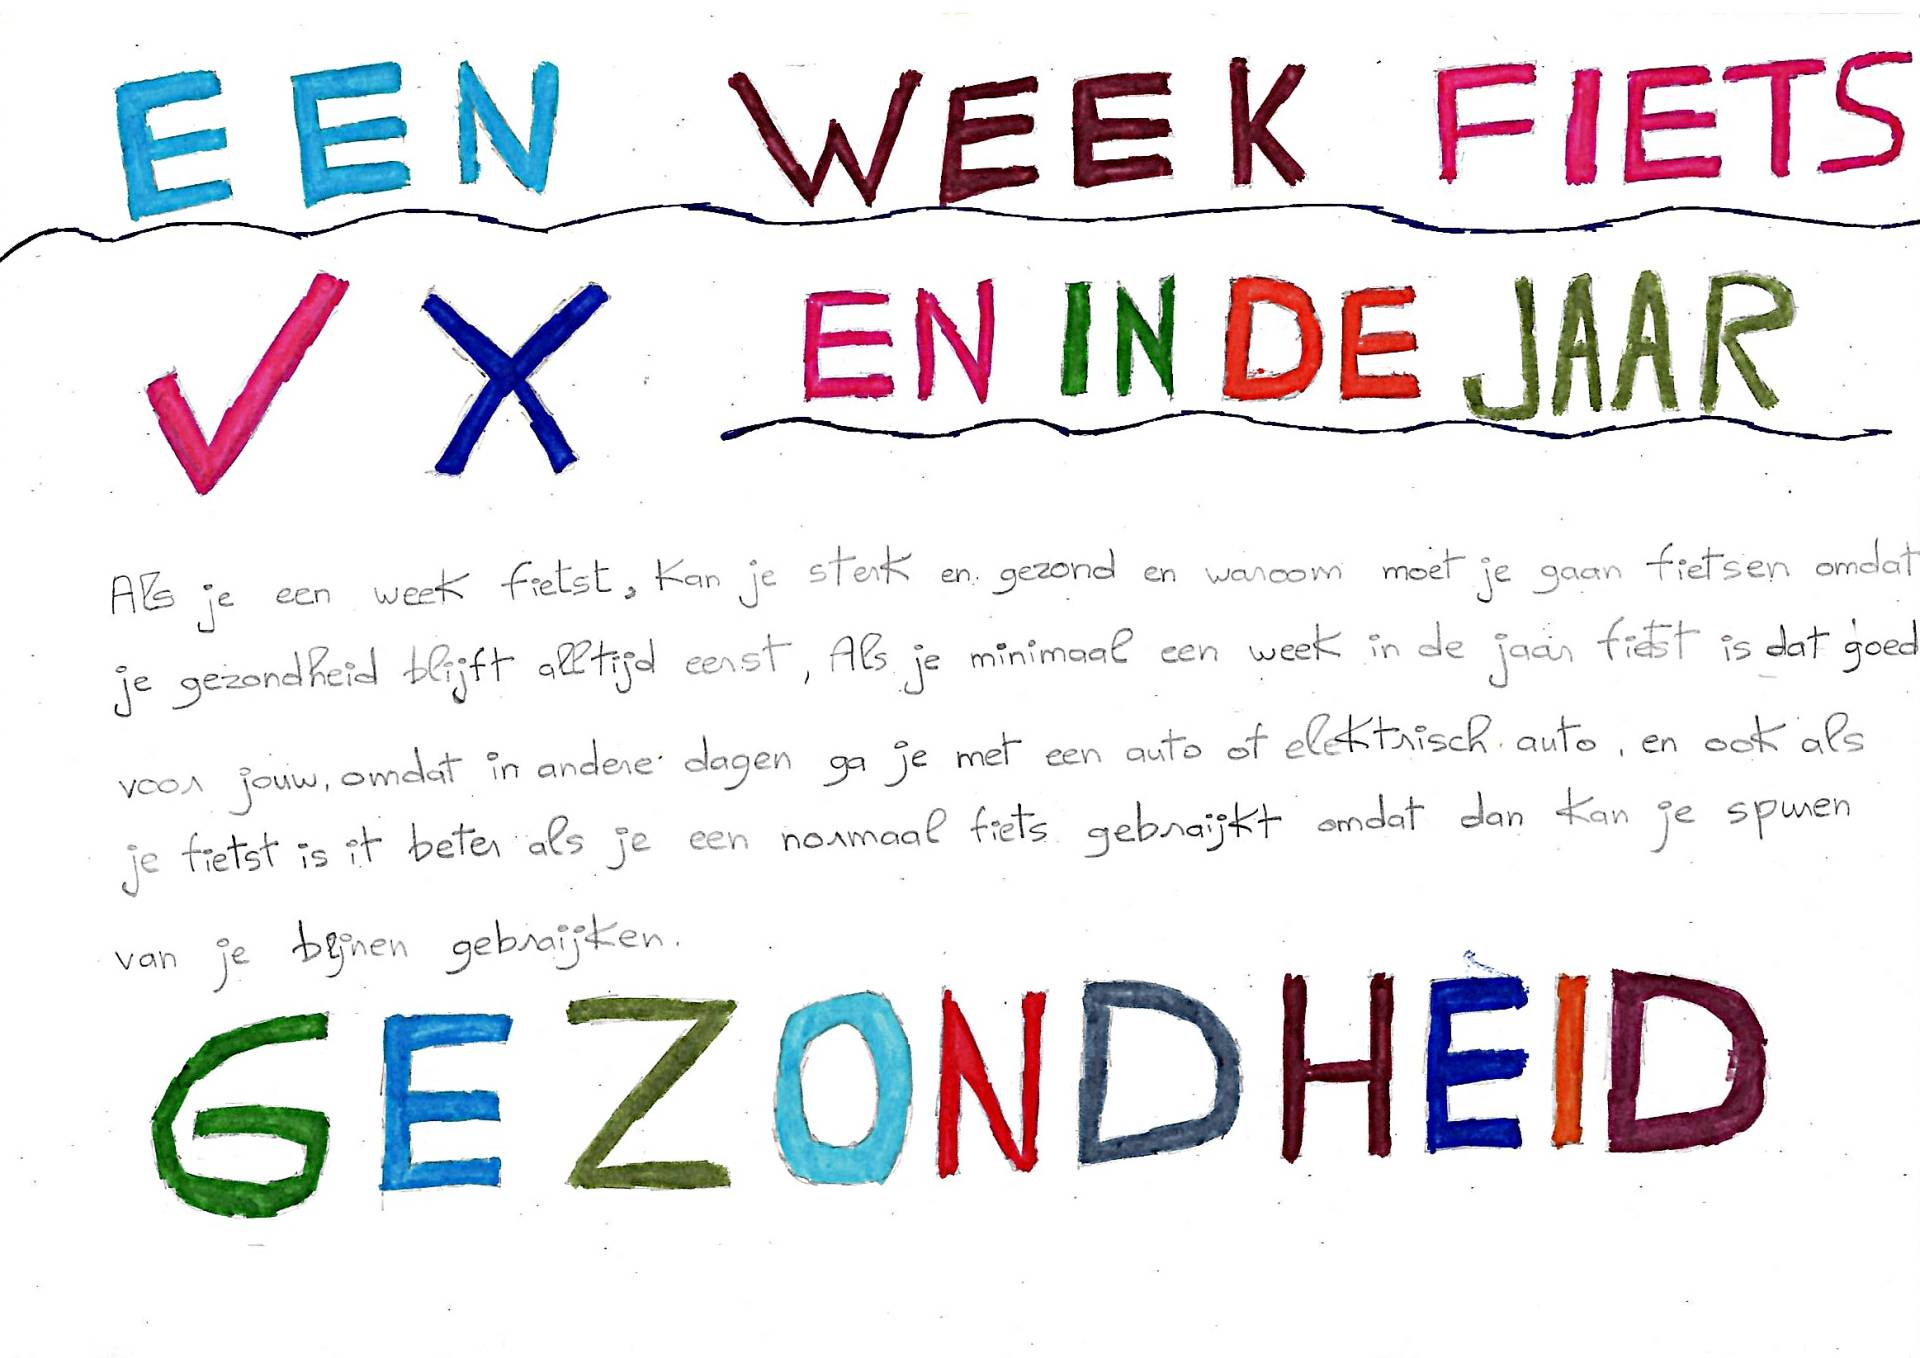 EEN WEEK FIETS
✓ X EN IN DE JAAR
Als je een week fietst, kan je sterk en gezond en waroom moet je gaan fietsen omdat
je gezondheid blijft alltijd eerst, Als je minimaal een week in de jaar fietst is dat goed
voor jouw, omdat in andere dagen ga je met een auto of elektrisch auto, en ook als
je fietst is it beter als je een normaal fiets gebraijkt omdat dan kan je spuren
van je bijnen gebraijken.
GEZONDHEID